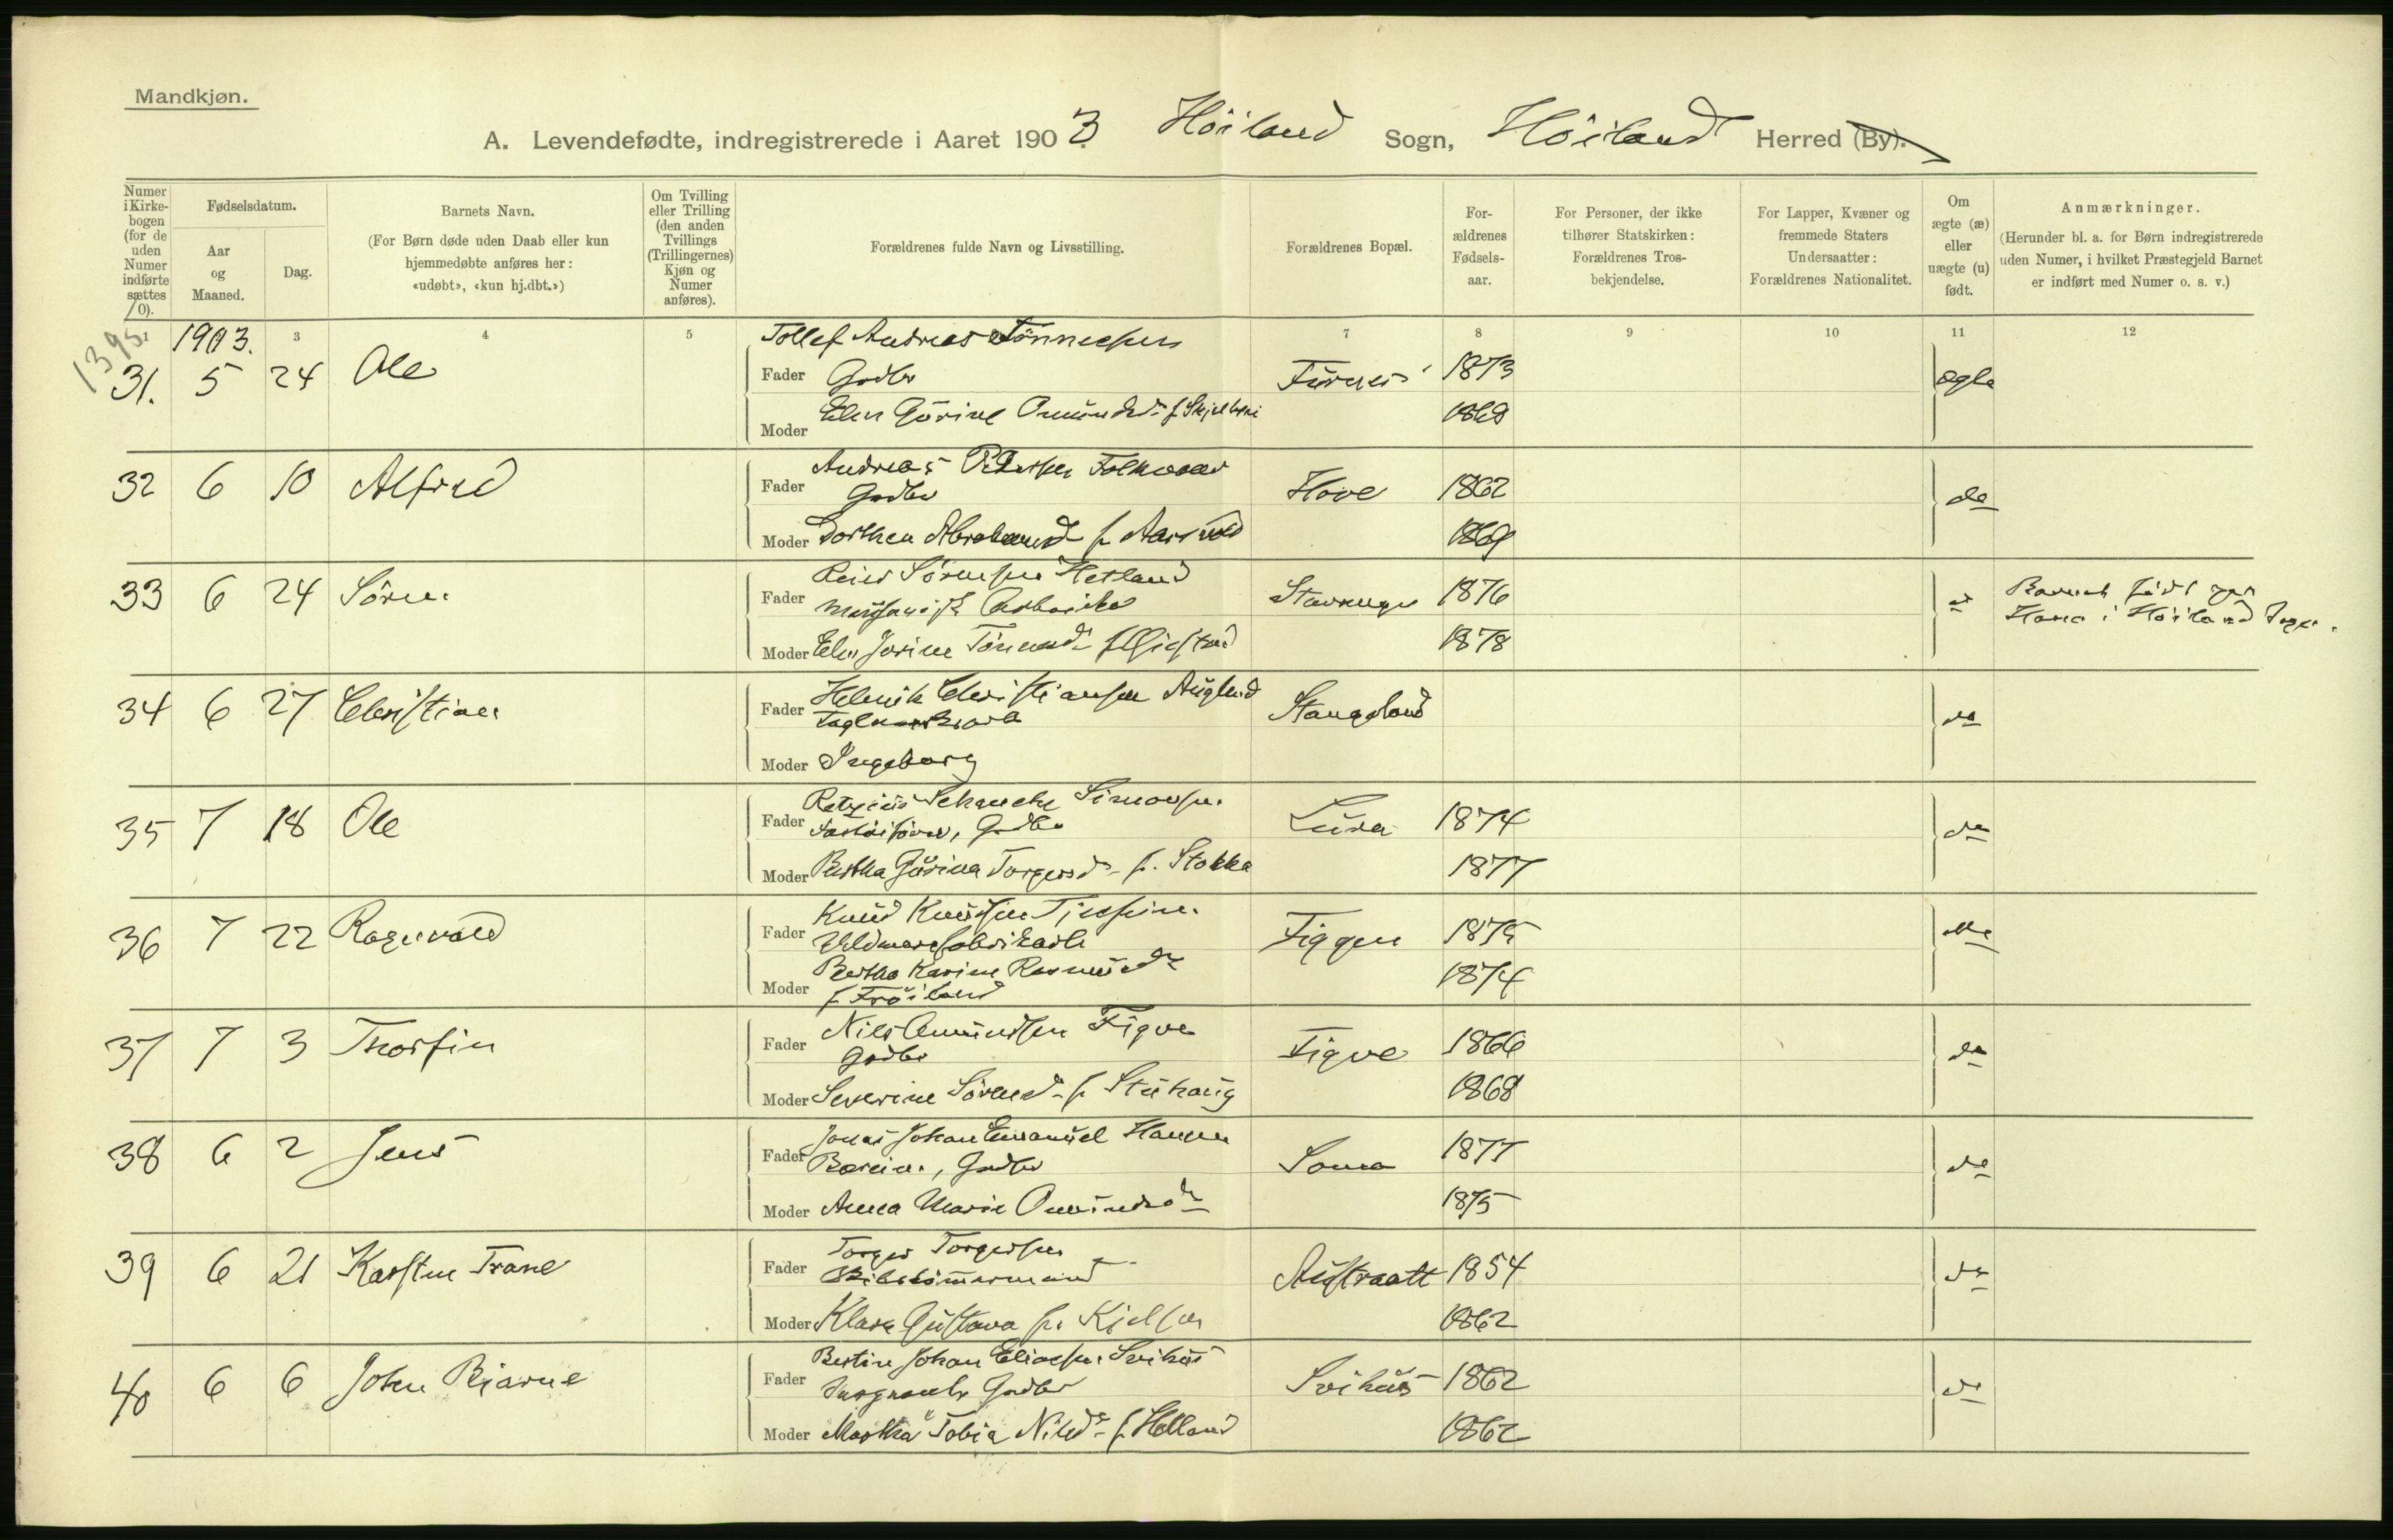 Mandkjøn.
A. Levendefødte, indregistrerede i Aaret 1903. Höiland Sogn, Höiland Herred (By).
Numer i Kirkebogen (for de uden Numer indførte sættes 0).
Fødselsdatum.
Aar og Maaned.
Dag.
Barnets Navn.
(For Børn døde uden Daab eller kun hjemmedøbte anføres her: «udøbt», «kun hj.dbt.»)
Om Tvilling eller Trilling (den anden Tvillings (Trillingernes) Kjøn og Numer anføres).
Forældrenes fulde Navn og Livsstilling.
Forældrenes Bopæl.
Forældrenes Fødselsaar.
For Personer, der ikke tilhører Statskirken: Forældrenes Trosbekjendelse.
For Lapper, Kvæner og fremmede Staters Undersaatter: Forældrenes Nationalitet.
Om ægte (æ) eller uægte (u) født.
Anmærkninger.
(Herunder bl. a. for Børn indregistrerede uden Numer, i hvilket Præstegjeld Barnet er indført med Numer o. s. v.)
1 3 4 5 7 8 9 10 11 12
1395
1903.
Tollef Andreas Tönnesen
31. 5 24 Ole Fader Gadbr 1873 ægte
Moder Elen Gürine Omündsdr f. 1868
32 6 10 Alfred Fader Andreas Pedersen
Gadbr Hove 1862 do
Moder Dorthea Abrahamsdr f. 1869
33 6 24 Sören Fader Reier Sörensen Hetland
Stavanger 1876 do Barnet födt paa
Hana i Höiland Sogn.
Moder Elen Jorine Tönnesdr 1878
34 6 27 Christian Fader Henrik Christiansen Auglend
Stangeland do
Moder Ingeborg
35 7 18 Ole Fader Schanche Simonsen
Gadbr Lura 1874 do
Moder Bertha Gürina Torgersdr f. Stokka 1877
36 7 22 Ragnvald Fader Knud Knudsen
Uldvarefabrikarb Figgen 1875 do
Moder Bertha Karine Rasmusdr 1874
f Fröiland
37 7 3 Thorfin Fader Nils Omundsen Figve
Gadbr Figve 1866 do
Moder Severine Sörensdr f. Stuhaug 1868
38 6 2 Jens Fader Jonas Johan Emanuel Hansen
Gadbr Soma 1877 do
Moder Anna Marie Omundsdr 1875
39 6 21 Karsten Trane Fader Torger Torgersen
Skibstömmermand Austraatt 1854 do
Moder Klara Gustava f. 1862
40 6 6 John Bjarne Fader Bertin Johan Eliassen Svihus
Gadbr Svihus 1862 do
Moder Martha Tobia Nilsdr f. Helland 1862